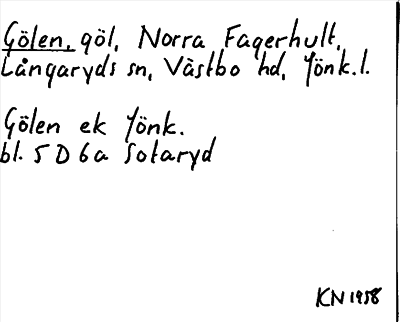 Gölen, göl, Norra Fagerhult,
Långaryds sn, Västbo hd, Jönk.l.
Gölen ek Jönk.
bl. 5 D 6a Sotaryd
KN 1958